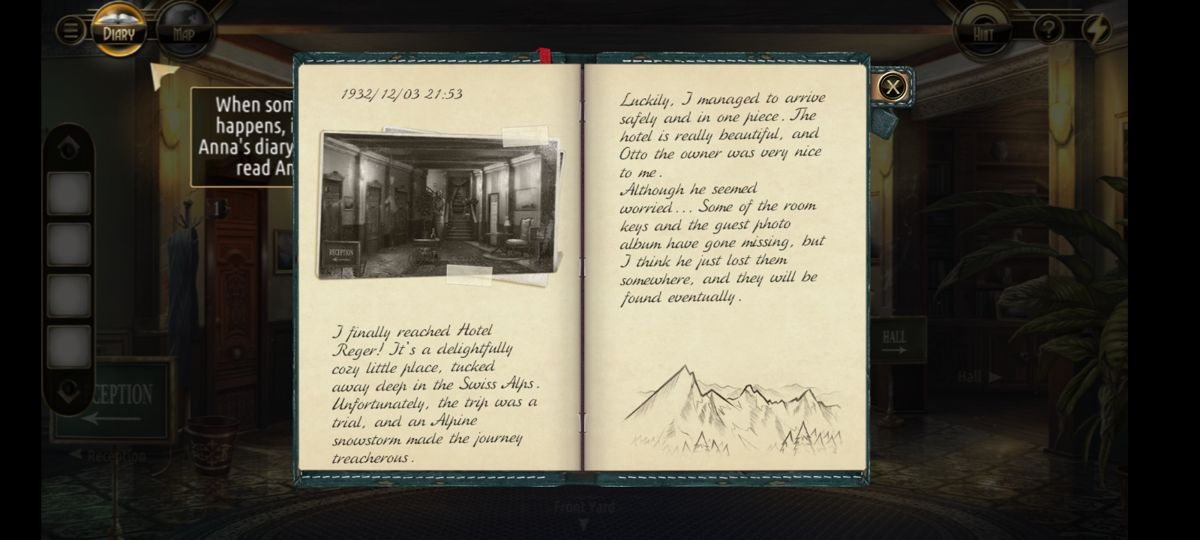 DIARY
MAP
HINT
?
When som
happens, i
Anna's diary
read An
1932/12/03 21:53
RECEPTION
I finally reached Hotel
Reger! It's a delightfully
cozy little place, tucked
away deep in the Swiss Alps.
Unfortunately, the trip was a
trial, and an Alpine
snowstorm made the journey
treacherous.
Luckily, I managed to arrive
safely and in one piece. The
hotel is really beautiful, and
Otto the owner was very nice
to me.
Although he seemed
worried... Some of the room
keys and the guest photo
album have gone missing, but
I think he just lost them
somewhere, and they will be
found eventually.
X
CEPTION
Reception
HALL
Hall
Front Yard